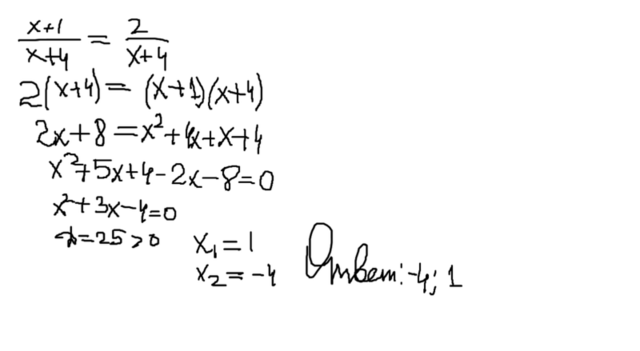 x+1/x+4 = 2/x+4
2(x+4) = (x+1)(x+4)
2x+8 = x²+4x+x+4
x²+5x+4-2x-8=0
x²+3x-4=0
D=25>0
x₁=1
x₂=-4
Ответ: -4; 1